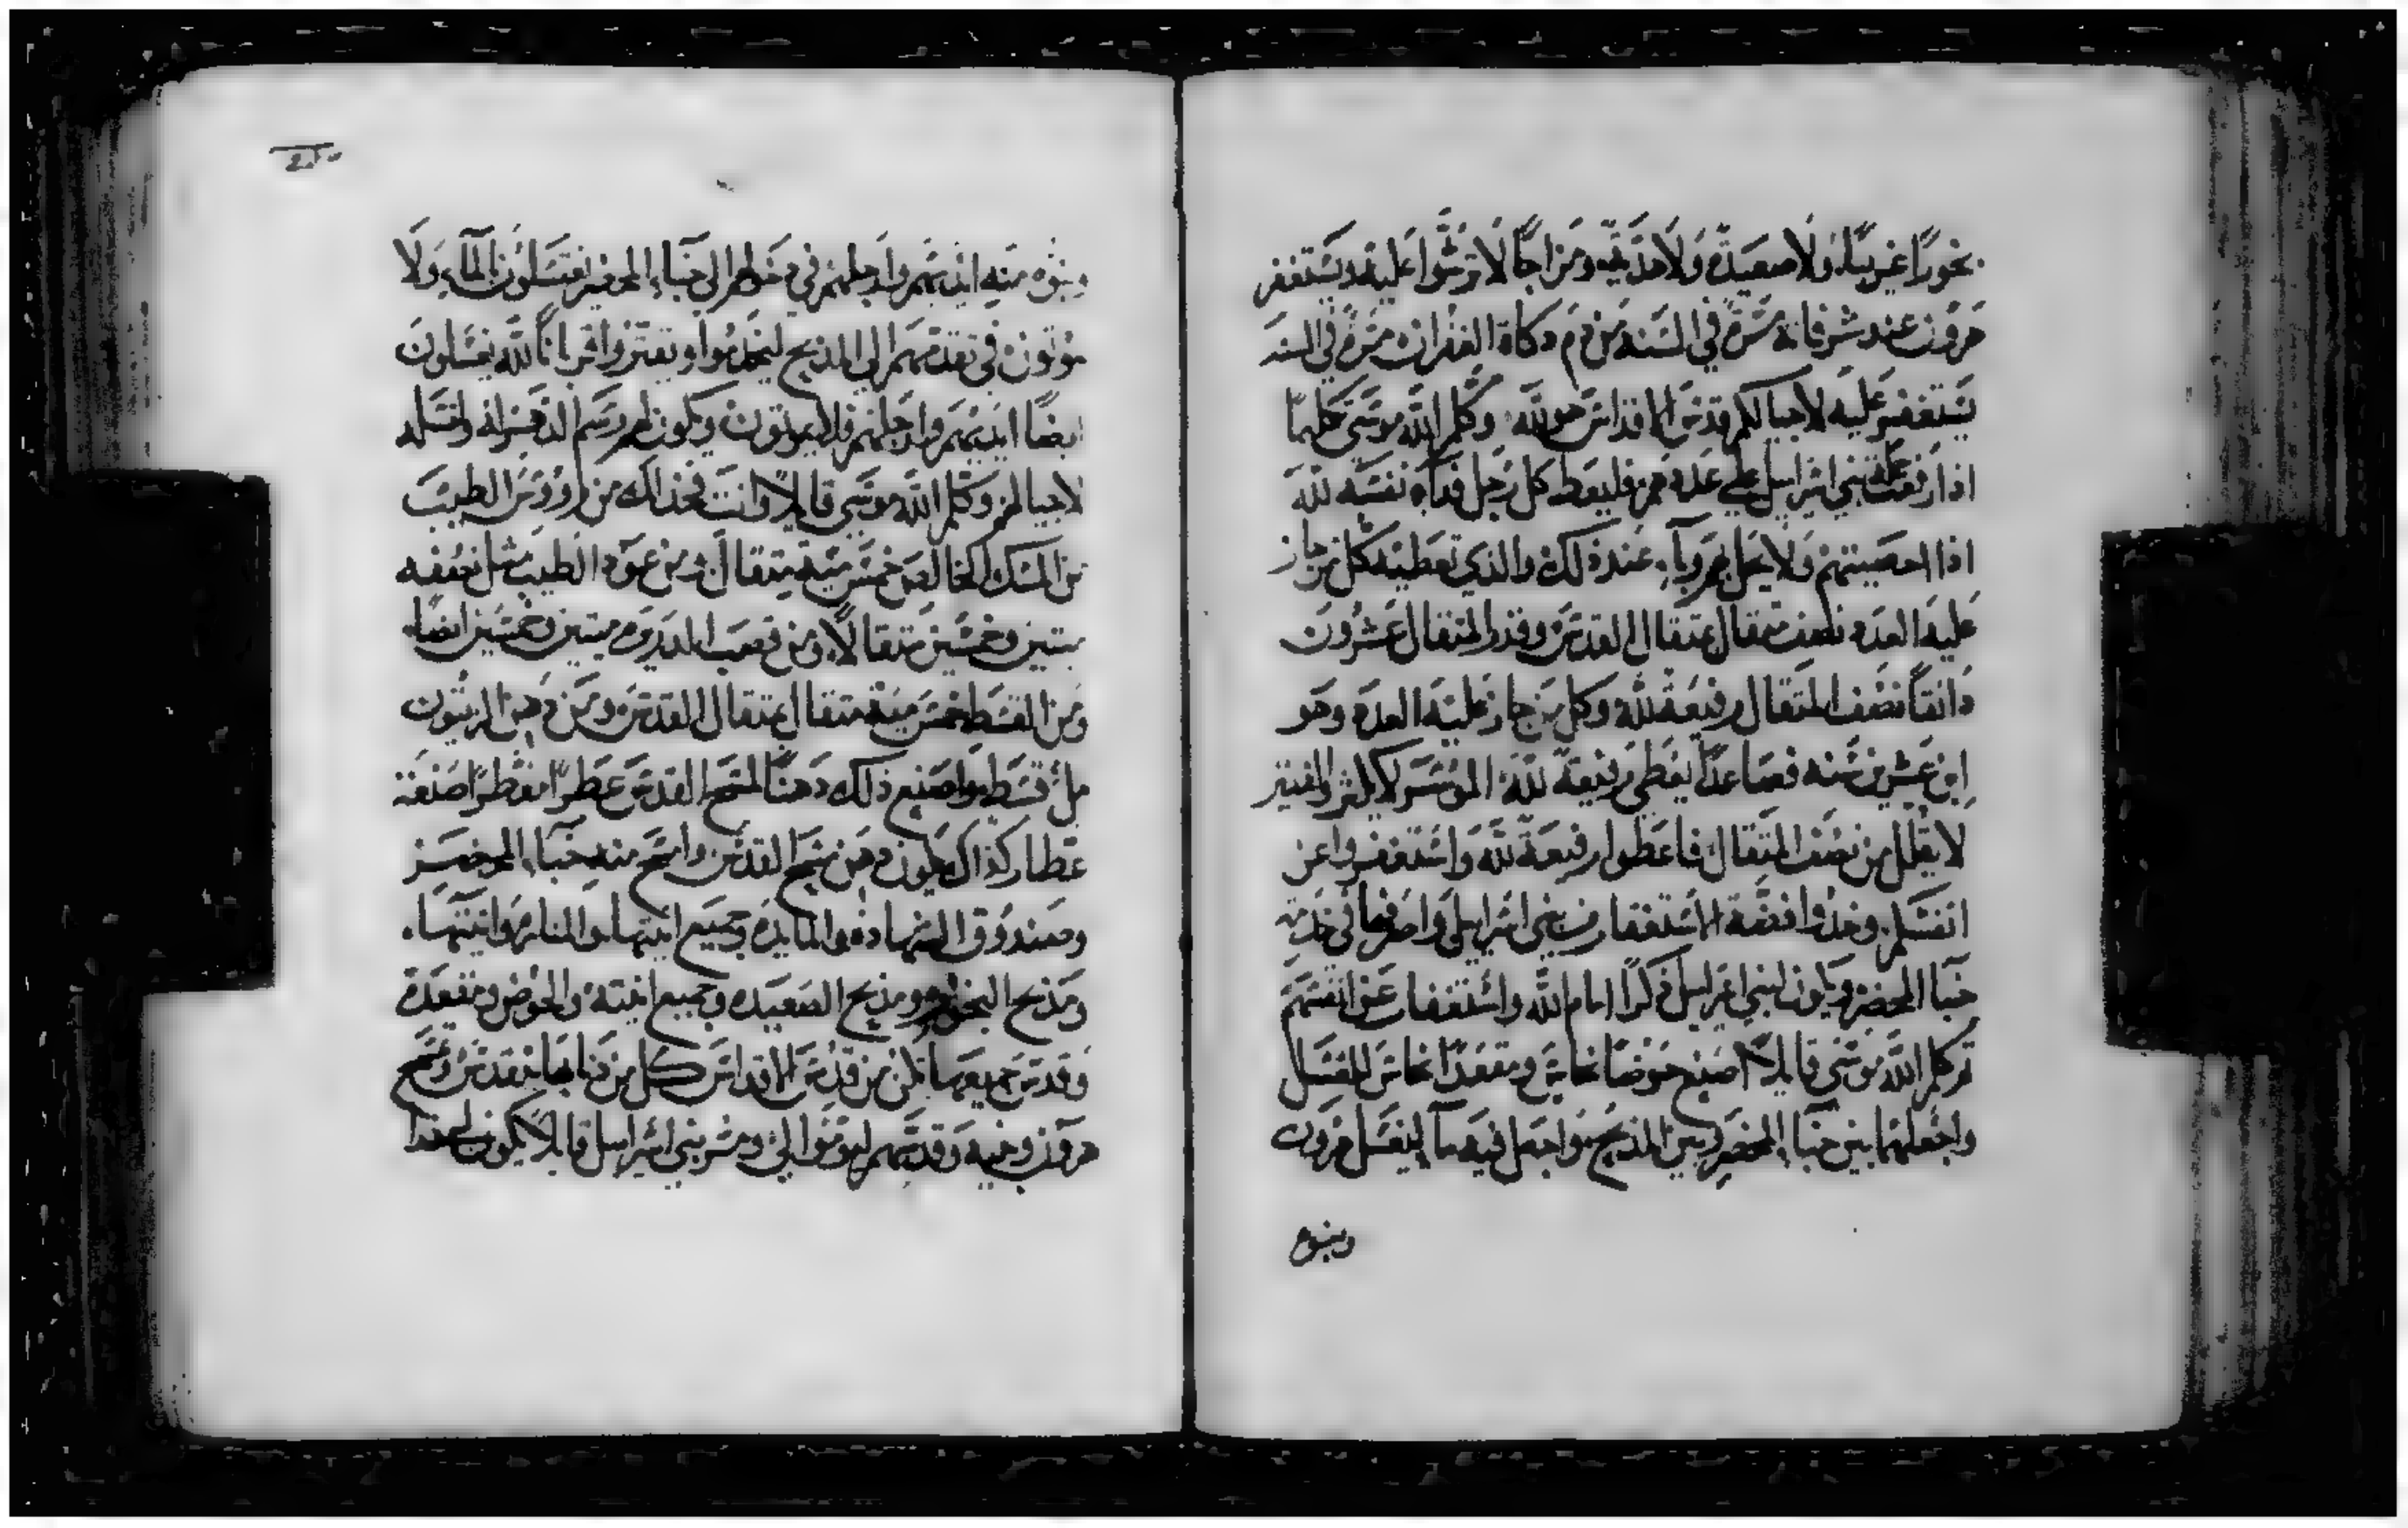 بخورًا غريبًا ولا صعيدة ولا هدية ومزاجًا لا ترشوا عليه ويستغفر
هرون عند شرفاته مرّة في السنة من دم ذكاة الغفران مرّة في السنه
يستغفر عليه لاجيالكم قدس الاقداس هو لله وكلم الله موسى تكليمًا
اذا رفعت جملة بني اسراييل على عددهم فليعط كل رجل فداء نفسه لله
اذا احصيتهم ولا يحل بهم وبآء عند ذلك والذي تعطيه كل من جاز
عليه العدد نصف مثقال بمثقال القدس وقدر المثقال عشرون
دانقًا نصف المثقال رفيعة لله وكل من جاز عليه العدد وهو
ابن عشرين سنه فصاعدًا يعطي رفيعة لله الموسر لا يكثر والفقير
لا يقلل من نصف المثقال فاعطوا رفيعة لله واستغفروا عن
انفسكم وخذوا فضة الاستغفار من بني اسراييل واصرفها في خدمة
خبآ المحضر ويكون لبني اسراييل ذكرًا امام الله واستغفار عن انفسهم
ثم كلم الله موسى قايلًا اصنع حوضًا نحاس ومقعدًا نحاس للغسل
واجعلهما بين خبآ المحضر وبين المذبح واجعل فيه مآ ليغسل هرون
وبنوه
وبنوه منه ايديهم وارجلهم في دخولهم الى خبآء المحضر يغتسلون بالمآء ولا
يموتون في تقدمهم الى المذبح ليخدموا ويقتروا قربانًا لله يغسلون
ايضًا ايديهم وارجلهم فلا يموتون ويكون لهم رسم الدهر له ولنسله
لاجيالهم وكلم الله موسى قايلًا وانت فخذ لك من روس الطيب
من المسك الخالص خمس ميه مثقال ومن عود الطيب مثل نصفه
ميتين وخمسين مثقالًا ومن قصب الذريره ميتين وخمسين ايضًا
ومن القسط خمس ميه مثقال بمثقال القدس ومن دهن الزيتون
مل قسط واصنع ذلك دهنًا لمسح القدس عطرًا معطرًا صنعة
عطار كذاك يكون دهن مسح القدس وامسح منه خبآء المحضر
وصندوق الشهادة والمايدة وجميع انيتها والمناره وانيتها
ومذبح البخور ومذبح الصعيده وجميع انيته والحوض ومقعدة
وقدس جميعها تكن من قدس الاقداس كل من دنا بها يتقدس وتمسح
هرون وبنيه وقدسهم ليوموا لي ومر بني اسراييل قايلًا يكون لهذا